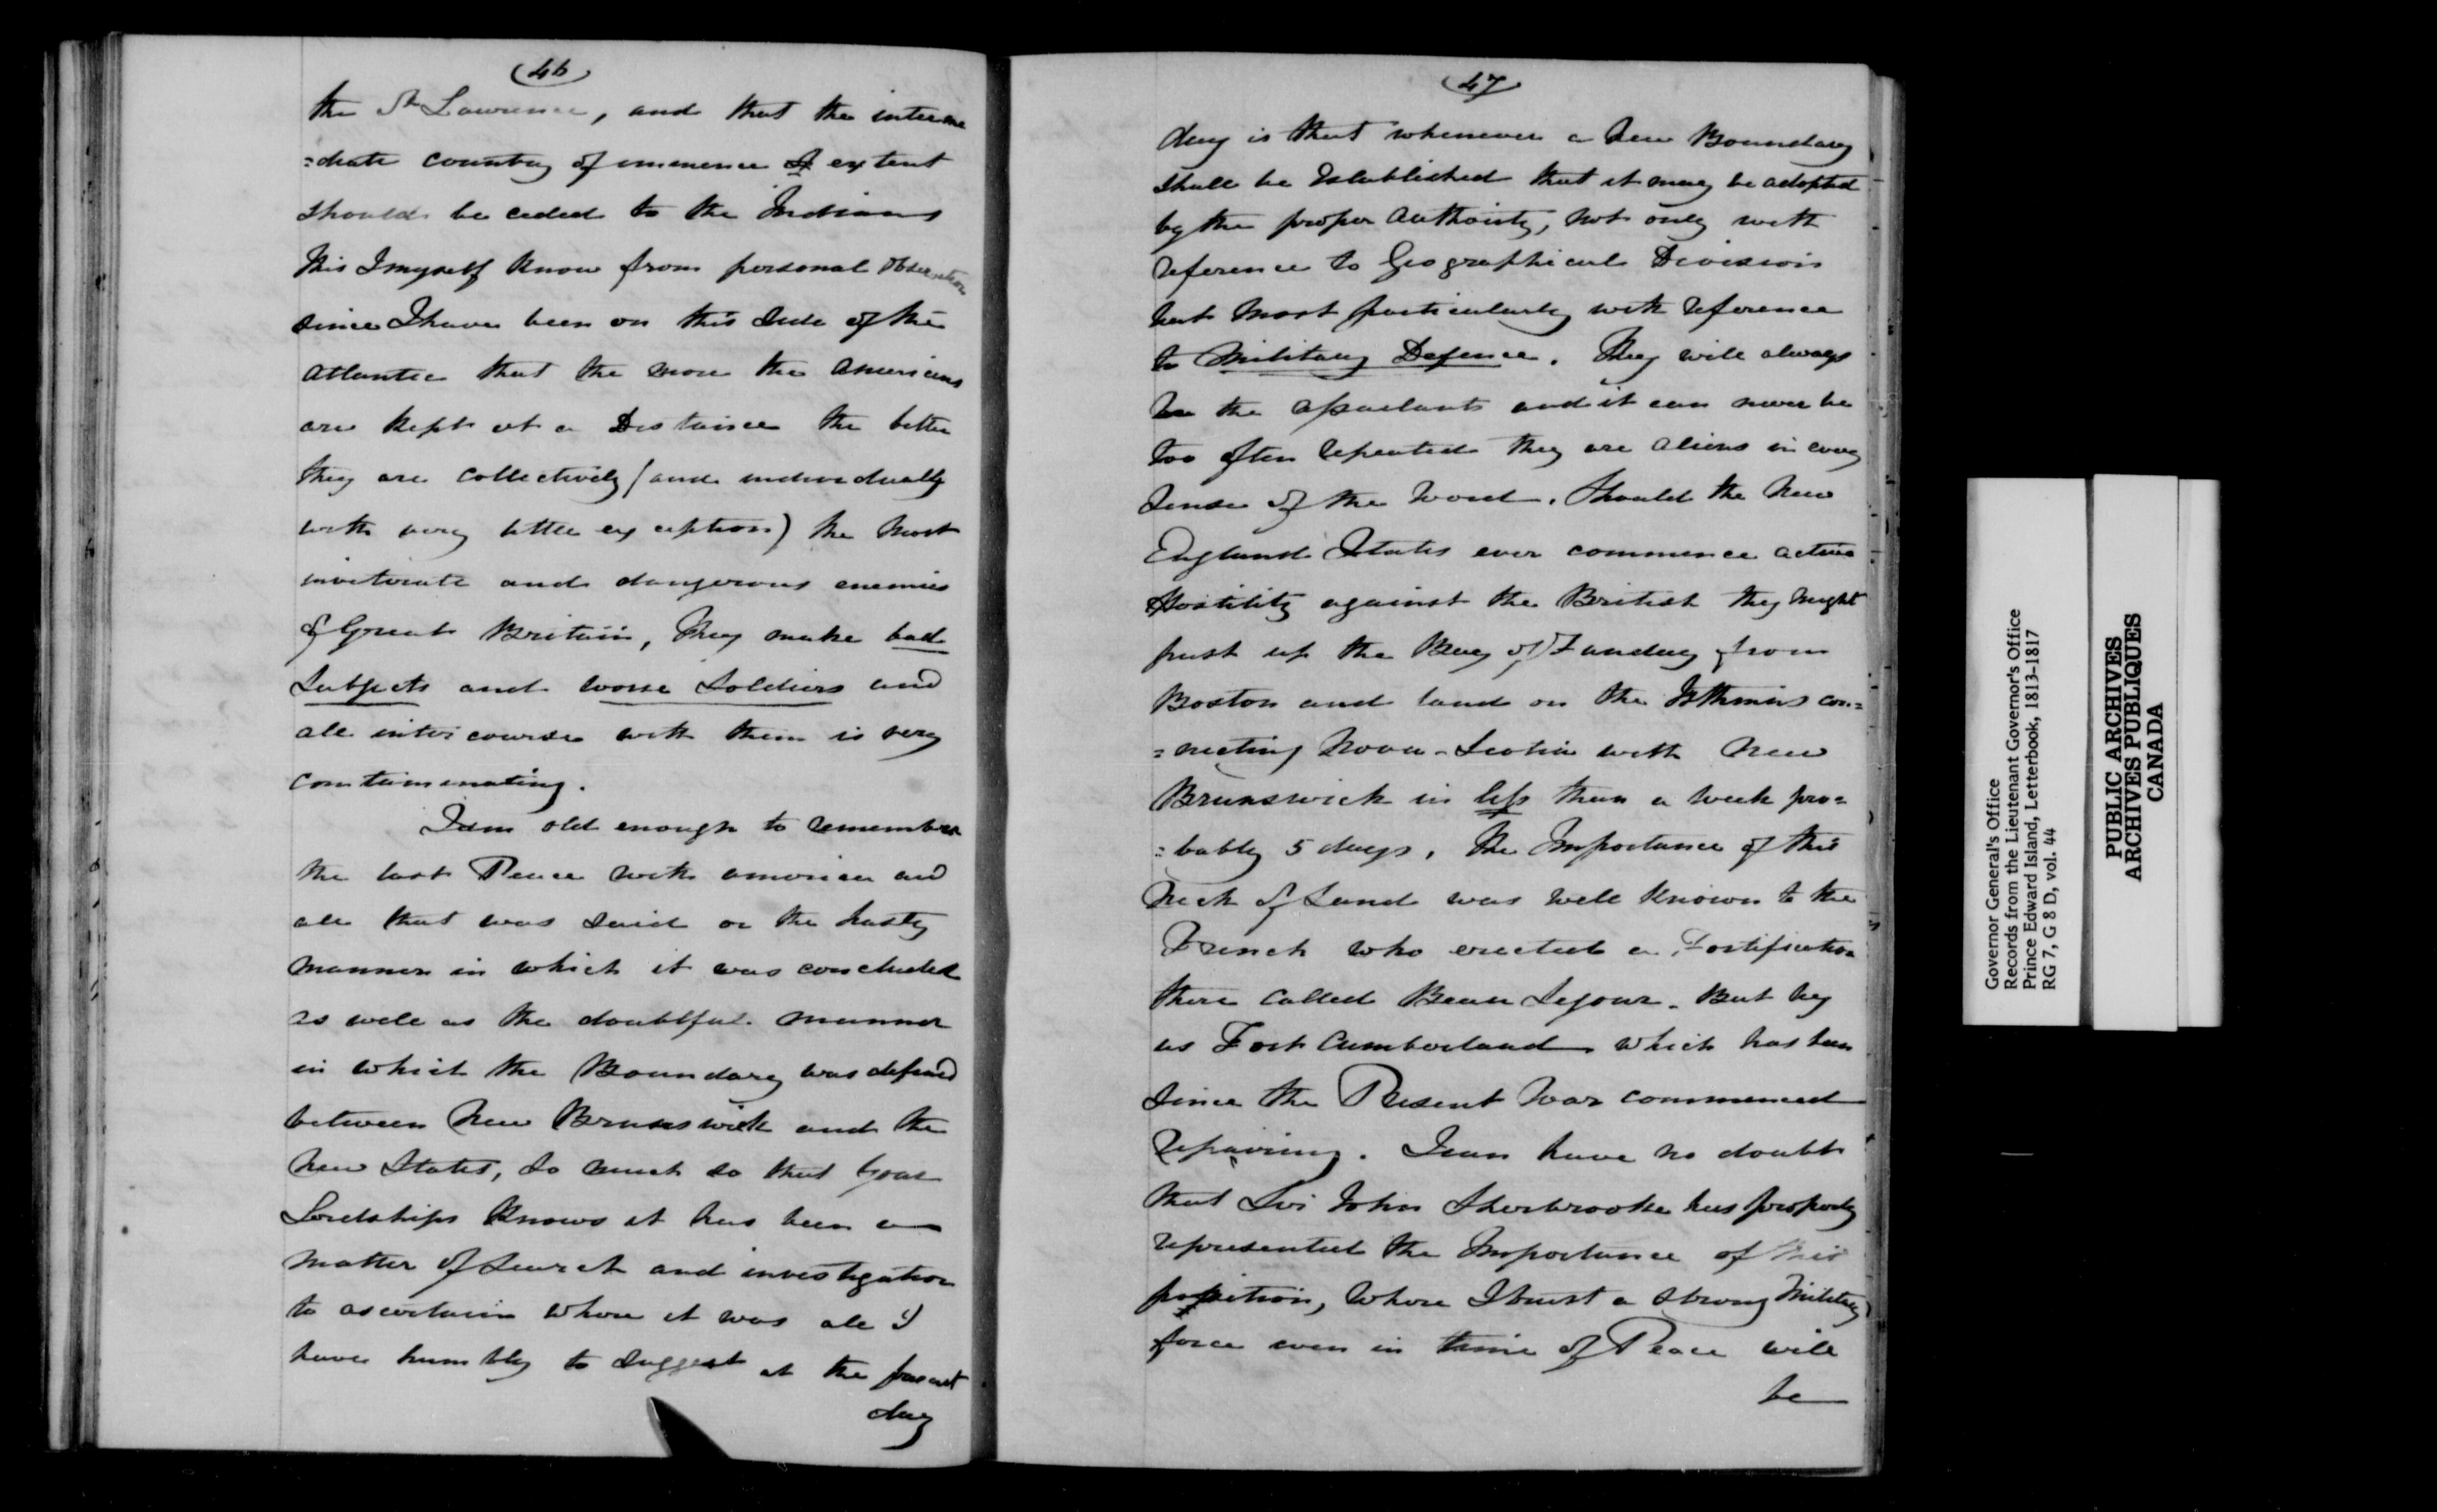 (46)
the St Lawrence, and that the interme
=diate country of immence extent
should be ceded to the Indians
This I myself know from personal observation
since I have been on this side of the
Atlantic that the more the Americans
are kept at a Distance the better
they are collectively (and individually
with very little exception) the most
inviterate and dangerous enemies
of Great Britain, They make bad
Subjects and worse Soldiers and
all intercourse with them is very
contaminating.
I am old enough to remember
the last Peace with America and
all that was said on the hasty
manner in which it was concluded
as well as the doubtful manner
in which the Boundary was defined
between New Brunswick and the
New States, so much so that your
Lordships knows it has been a
matter of search and investigation
to ascertain where it was all I
have humbly to suggest at the present
day
(47)
day is that whenever a new Boundary
shall be Established that it may be adopted
by the proper Authority, not only with
reference to Geographical Division
but most particularly with reference
to Military Defence. They will always
be the assailants and it can never be
too often repeated they are aliens in every
sense of the word. Should the New
England States ever commence active
Hostility against the British they might
push up the Bay of Fundy from
Boston and land on the Isthmus con=
=necting Nova-Scotia with New
Brunswick in less than a week pro=
=bably 5 days. The Importance of this
neck of Land was well known to the
French who erected a Fortification
there called Beau Sejour. But by
us Fort Cumberland which has been
since the Present War commenced
repairing. I can have no doubt
that Sir John Sherbrooke has properly
represented the Importance of this
position, where I trust a strong Military
force even in time of Peace will
be
Governor General's Office
Records from the Lieutenant Governor's Office
Prince Edward Island, Letterbook, 1813-1817
RG 7, G 8 D, vol. 44
PUBLIC ARCHIVES
ARCHIVES PUBLIQUES
CANADA